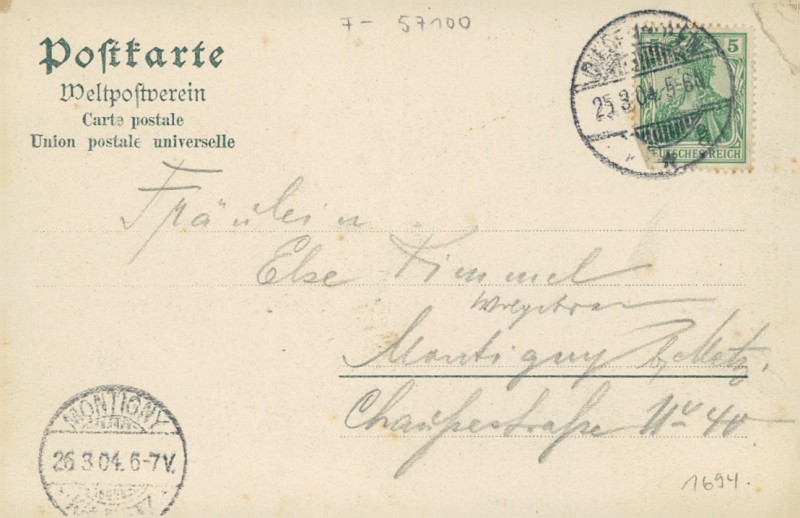 7- 57100
Postkarte
Weltpostverein
Carte postale
Union postale universelle
5
25.3.04. 5-6N.
DEUTSCHES REICH
Fräulein
Else Kimmel
Montigny b/Metz.
Chaußestraße No 40
MONTIGNY
26.3.04. 6-7V.
1694.